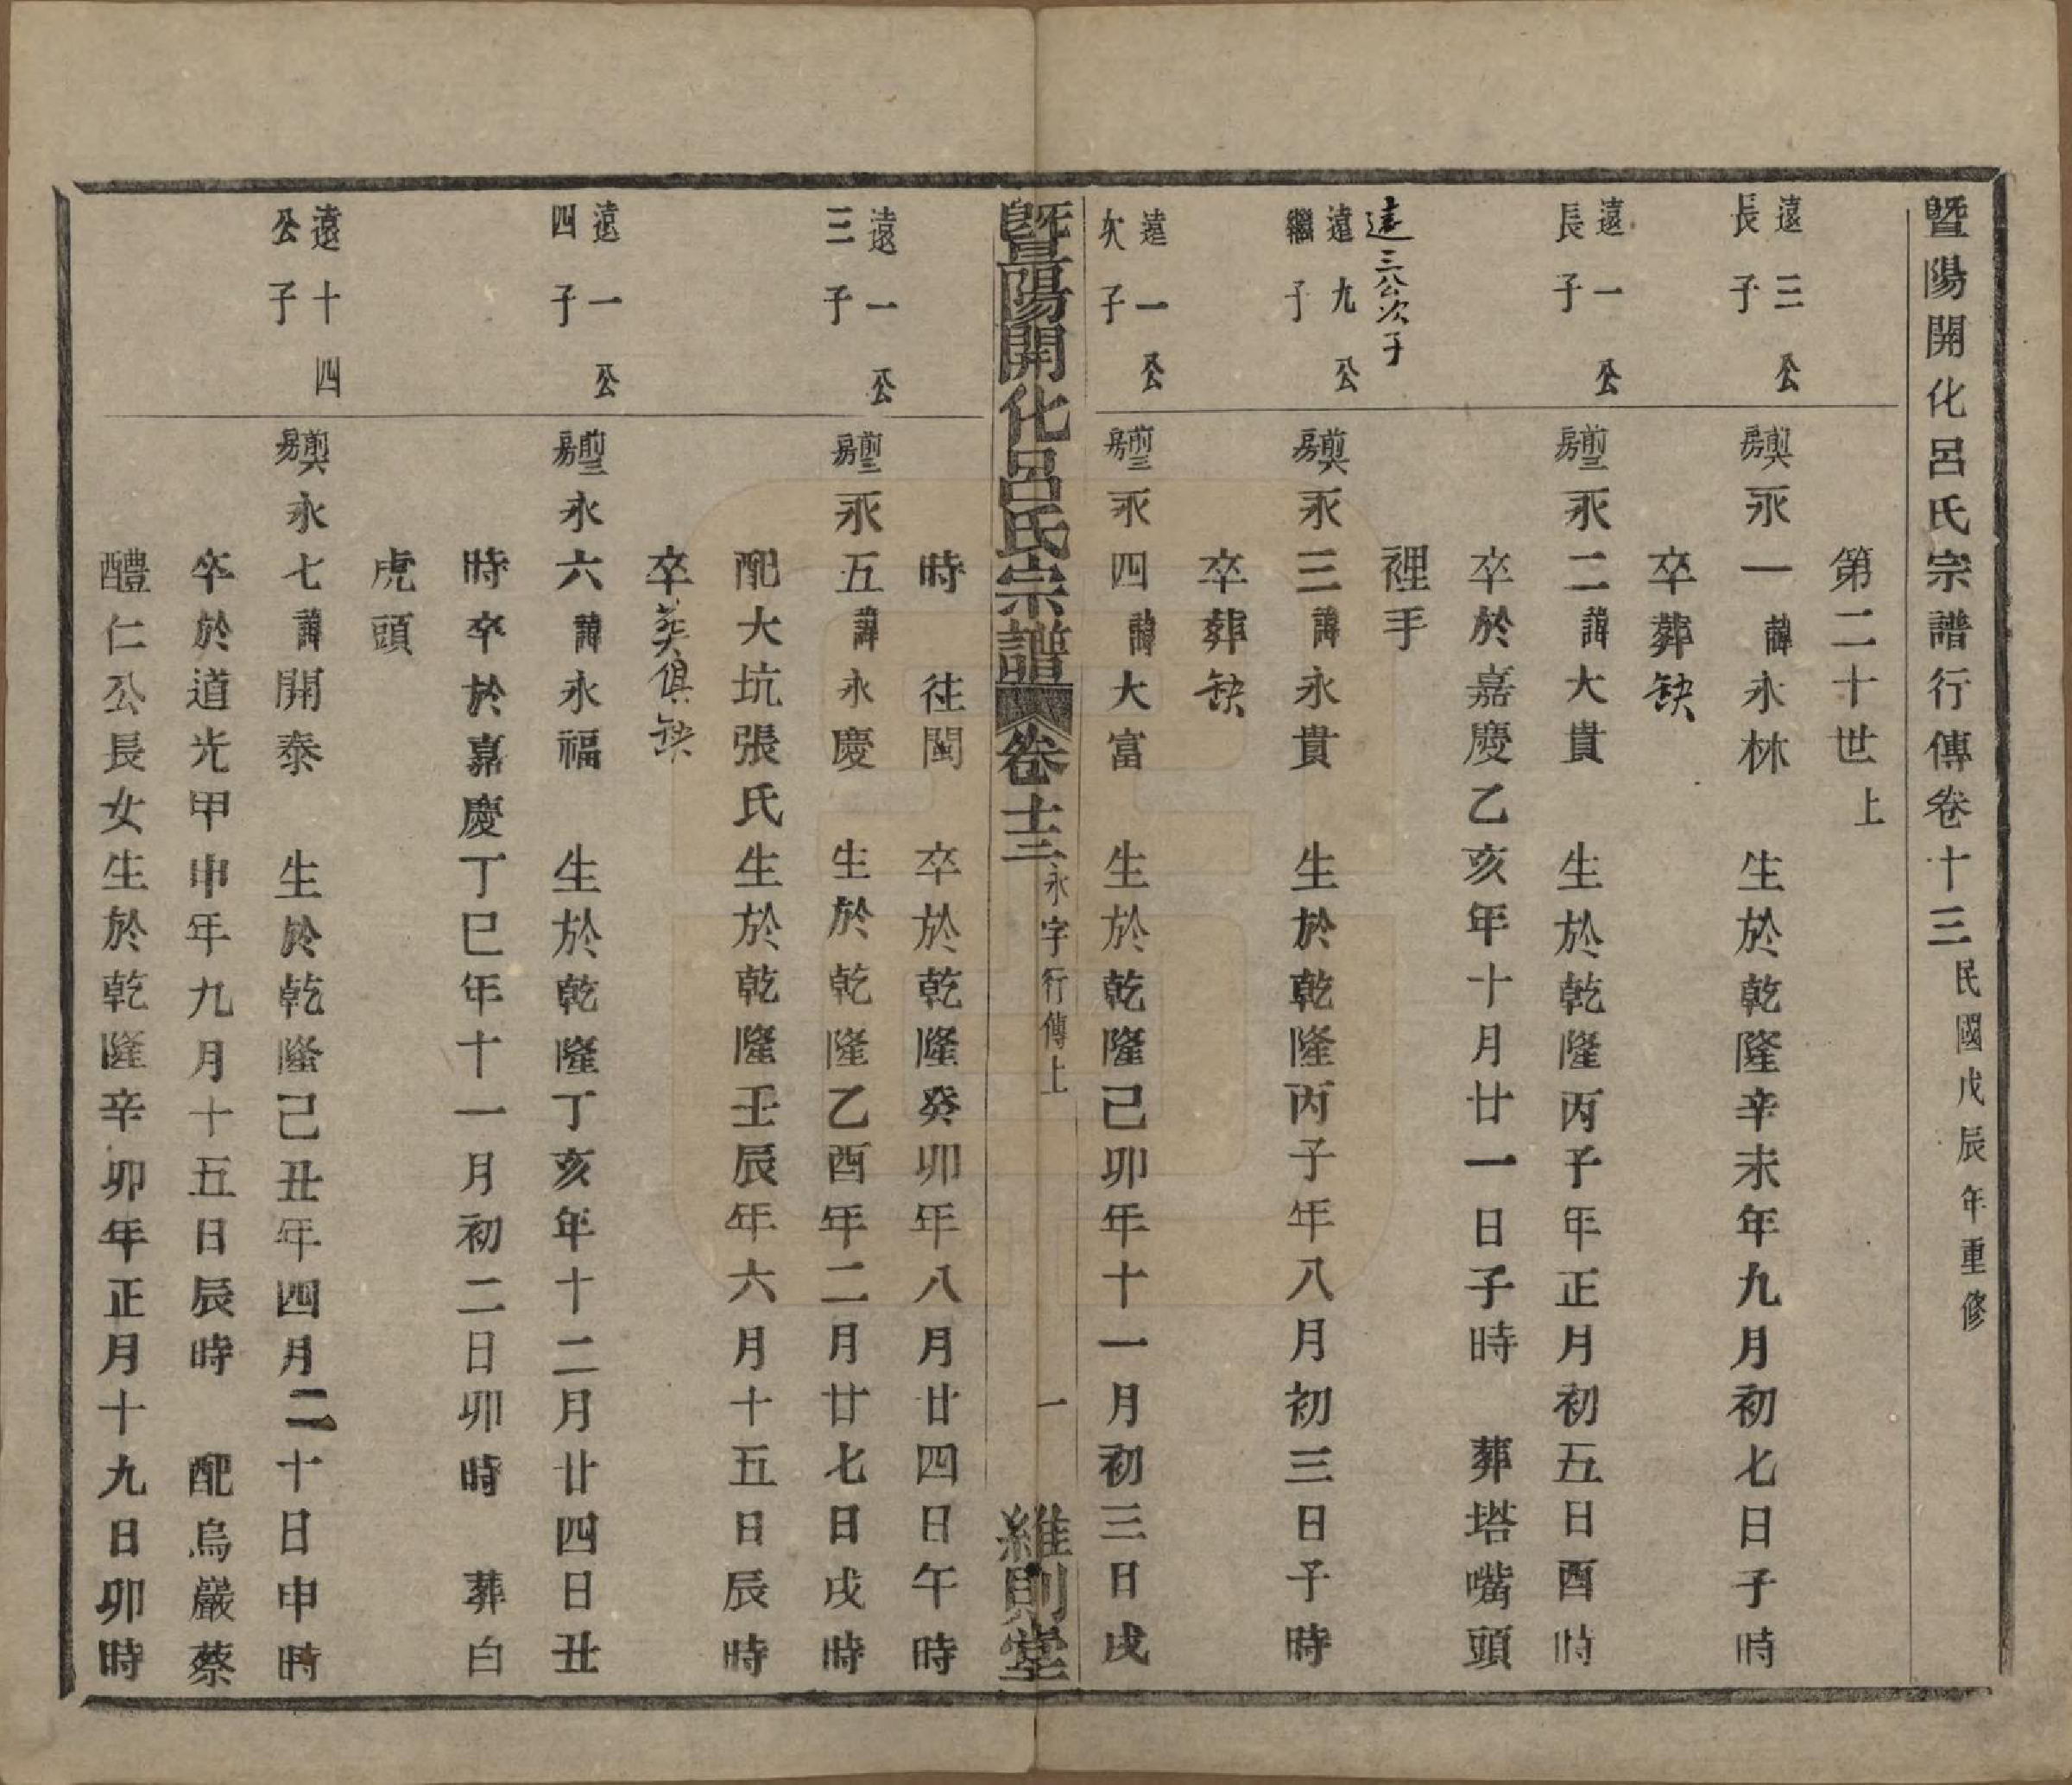 暨陽開化呂氏宗譜行傳卷十三 民國戊辰年重修
第二十世上
遠三公
長子
永一諱永林 生於乾隆辛未年九月初七日子時
卒葬缺
遠一公
長子
永二諱大貴 生於乾隆丙子年正月初五日酉時
卒於嘉慶乙亥年十月廿一日子時 葬塔嘴頭
裡手
遠三公次子
遠九公
繼子
永三諱永貴 生於乾隆丙子年八月初三日子時
卒葬缺
遠一公
次子
永四諱大富 生於乾隆己卯年十一月初三日戌
暨陽開化呂氏宗譜 卷十三 永字行傳上 一 維則堂
時 往閩 卒於乾隆癸卯年八月廿四日午時
遠一公
三子
永五諱永慶 生於乾隆乙酉年二月廿七日戌時
配大坑張氏生於乾隆壬辰年六月十五日辰時
卒葬俱缺
遠一公
四子
永六諱永福 生於乾隆丁亥年十二月廿四日丑
時卒於嘉慶丁巳年十一月初二日卯時 葬白
虎頭
遠十四
公子
永七諱開泰 生於乾隆己丑年四月二十日申時
卒於道光甲申年九月十五日辰時 配烏巖蔡
醴仁公長女生於乾隆辛卯年正月十九日卯時